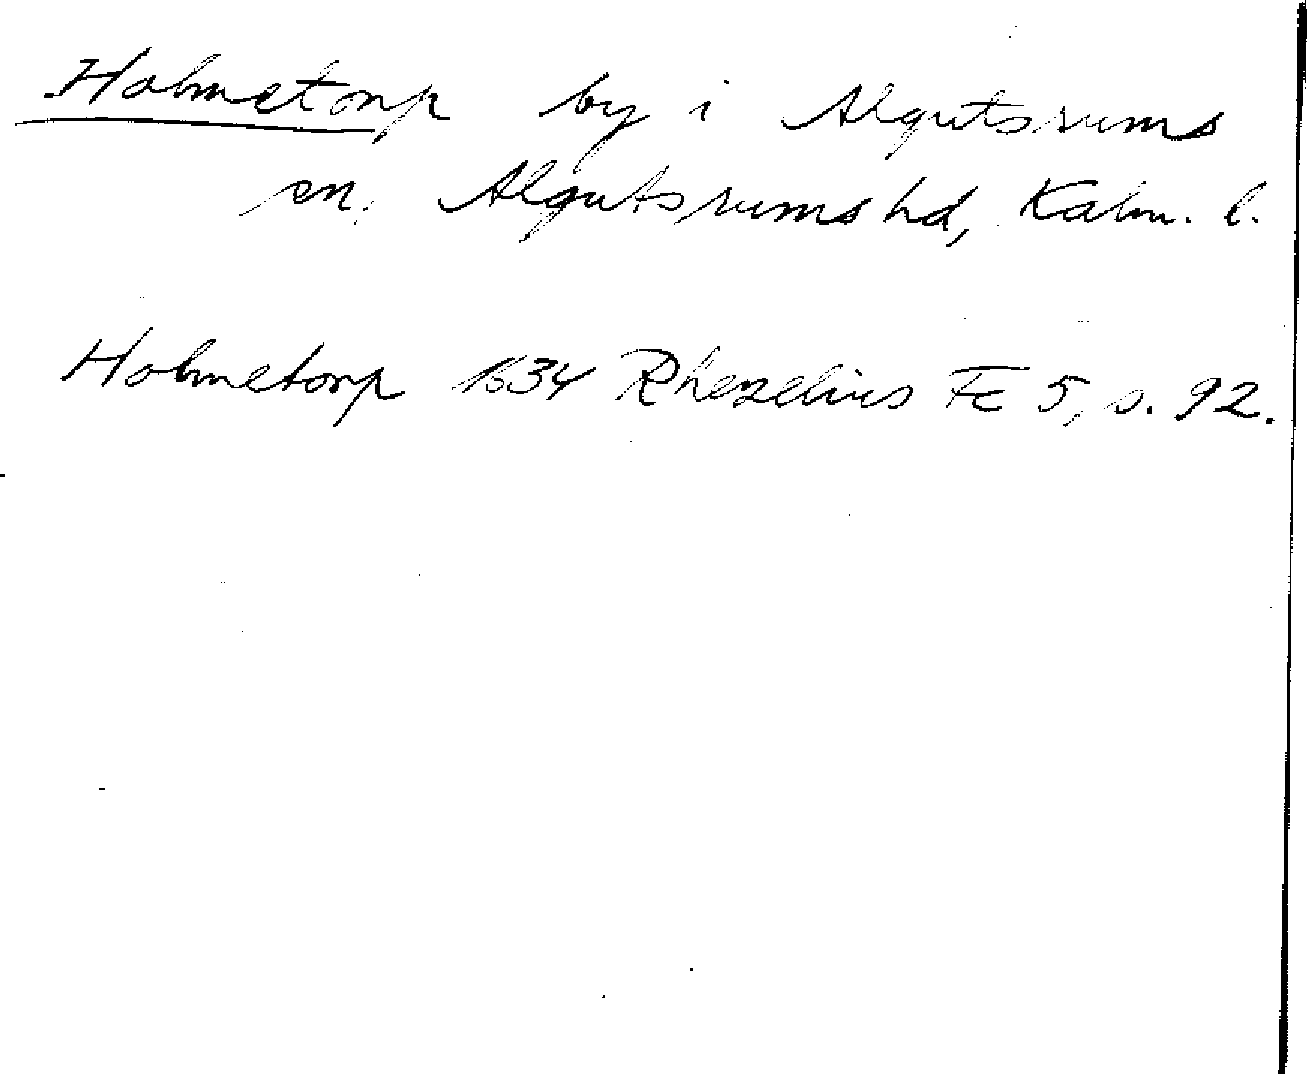 Holmetorp by i Algutsrums
sn. Algutsrums hd, Kalm. l.
Holmetorp 1634 Rhezelius Fc 5, s. 92.